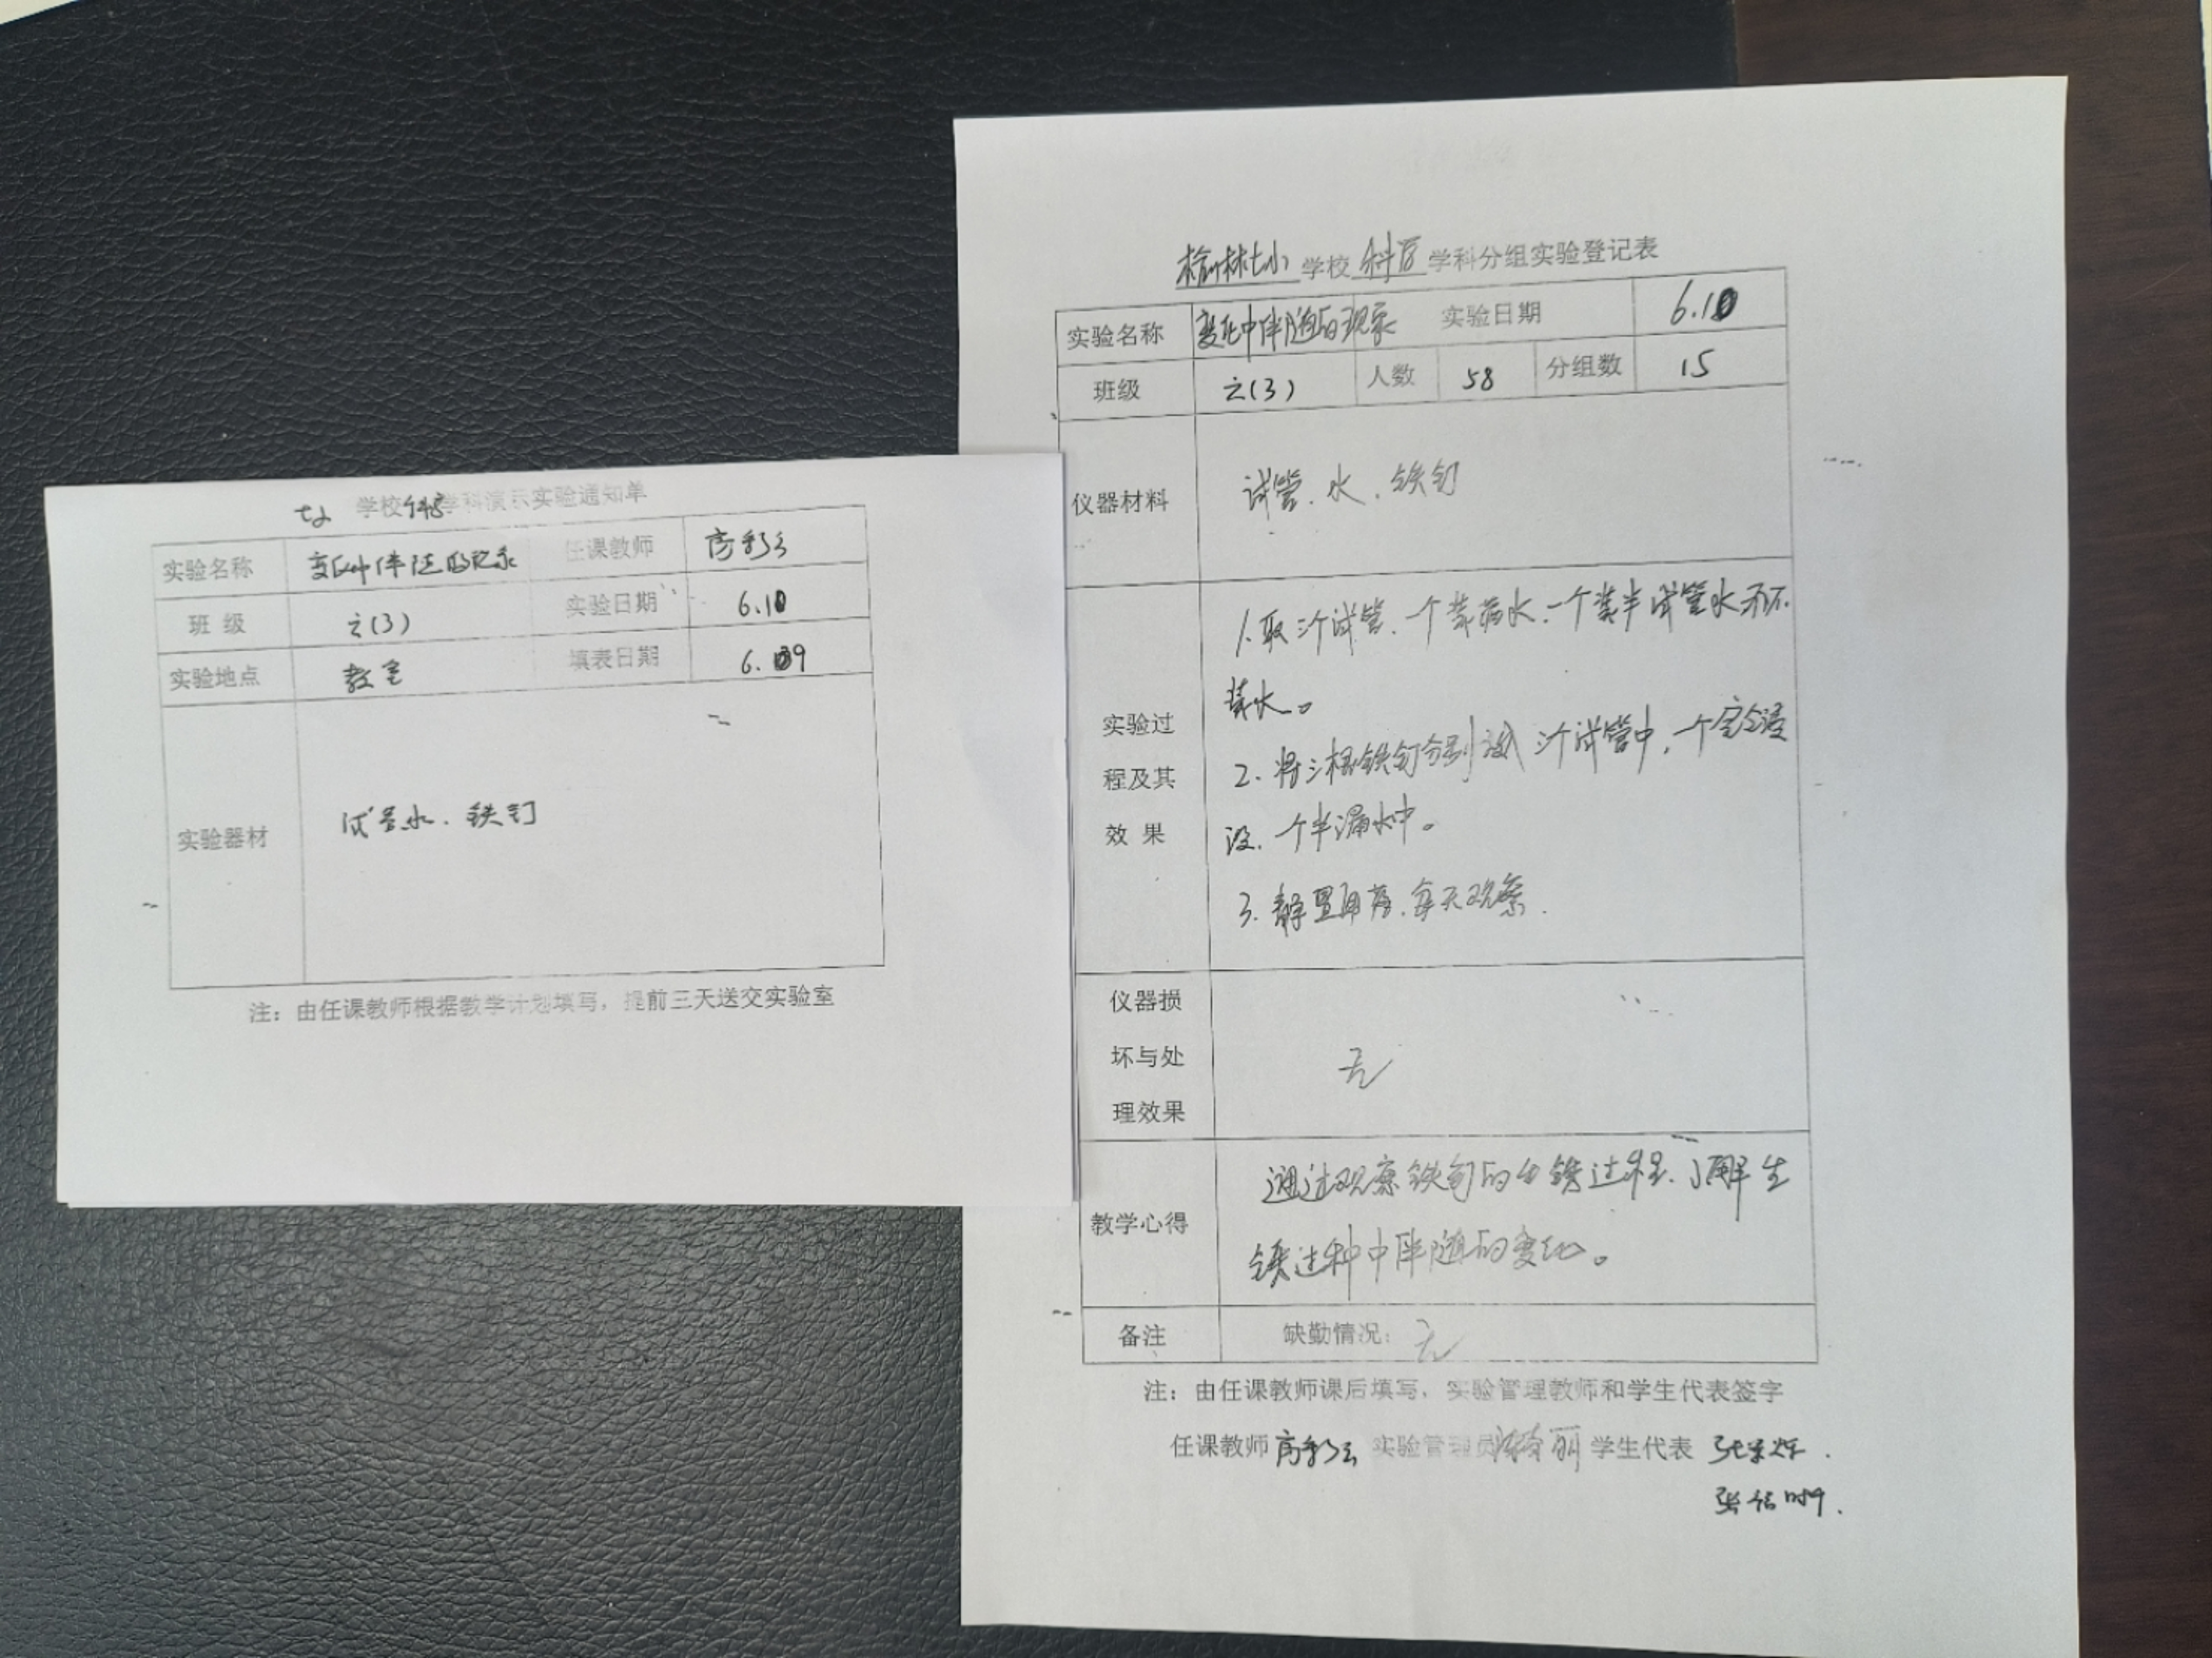 七小 学校科学学科演示实验通知单
实验名称 变化中伴随的现象 任课教师 高彩云
班 级 六(3) 实验日期 6.10
实验地点 教室 填表日期 6.09
实验器材 试管水、铁钉
注：由任课教师根据教学计划填写，提前三天送交实验室
榆林七小 学校 科学 学科分组实验登记表
实验名称 变化中伴随的现象 实验日期 6.10
班级 六(3) 人数 58 分组数 15
仪器材料 试管、水、铁钉
实验过
程及其
效 果
1.取三个试管、一个装满水、一个装半试管水、不
装水。
2.将三根铁钉分别放入三个试管中，一个完全浸
没、一个半漏水中。
3.静置用药、每天观察.
仪器损
坏与处
理效果
无
教学心得
通过观察铁钉的生锈过程、了解生
锈过种中伴随的变化。
备注 缺勤情况：无
注：由任课教师课后填写，实验管理教师和学生代表签字
任课教师 高彩云 实验管理员 学生代表